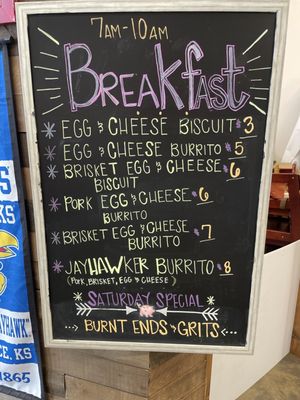 7AM-10AM
BREAKFAST
* EGG & CHEESE BISCUIT $3
* EGG & CHEESE BURRITO $5
* BRISKET EGG & CHEESE $6
BISCUIT
* PORK EGG & CHEESE $6
BURRITO
* BRISKET EGG & CHEESE $7
BURRITO
* JAYHAWKER BURRITO $8
(PORK, BRISKET, EGG & CHEESE)
* SATURDAY SPECIAL *
BURNT ENDS & GRITS
KS
1865